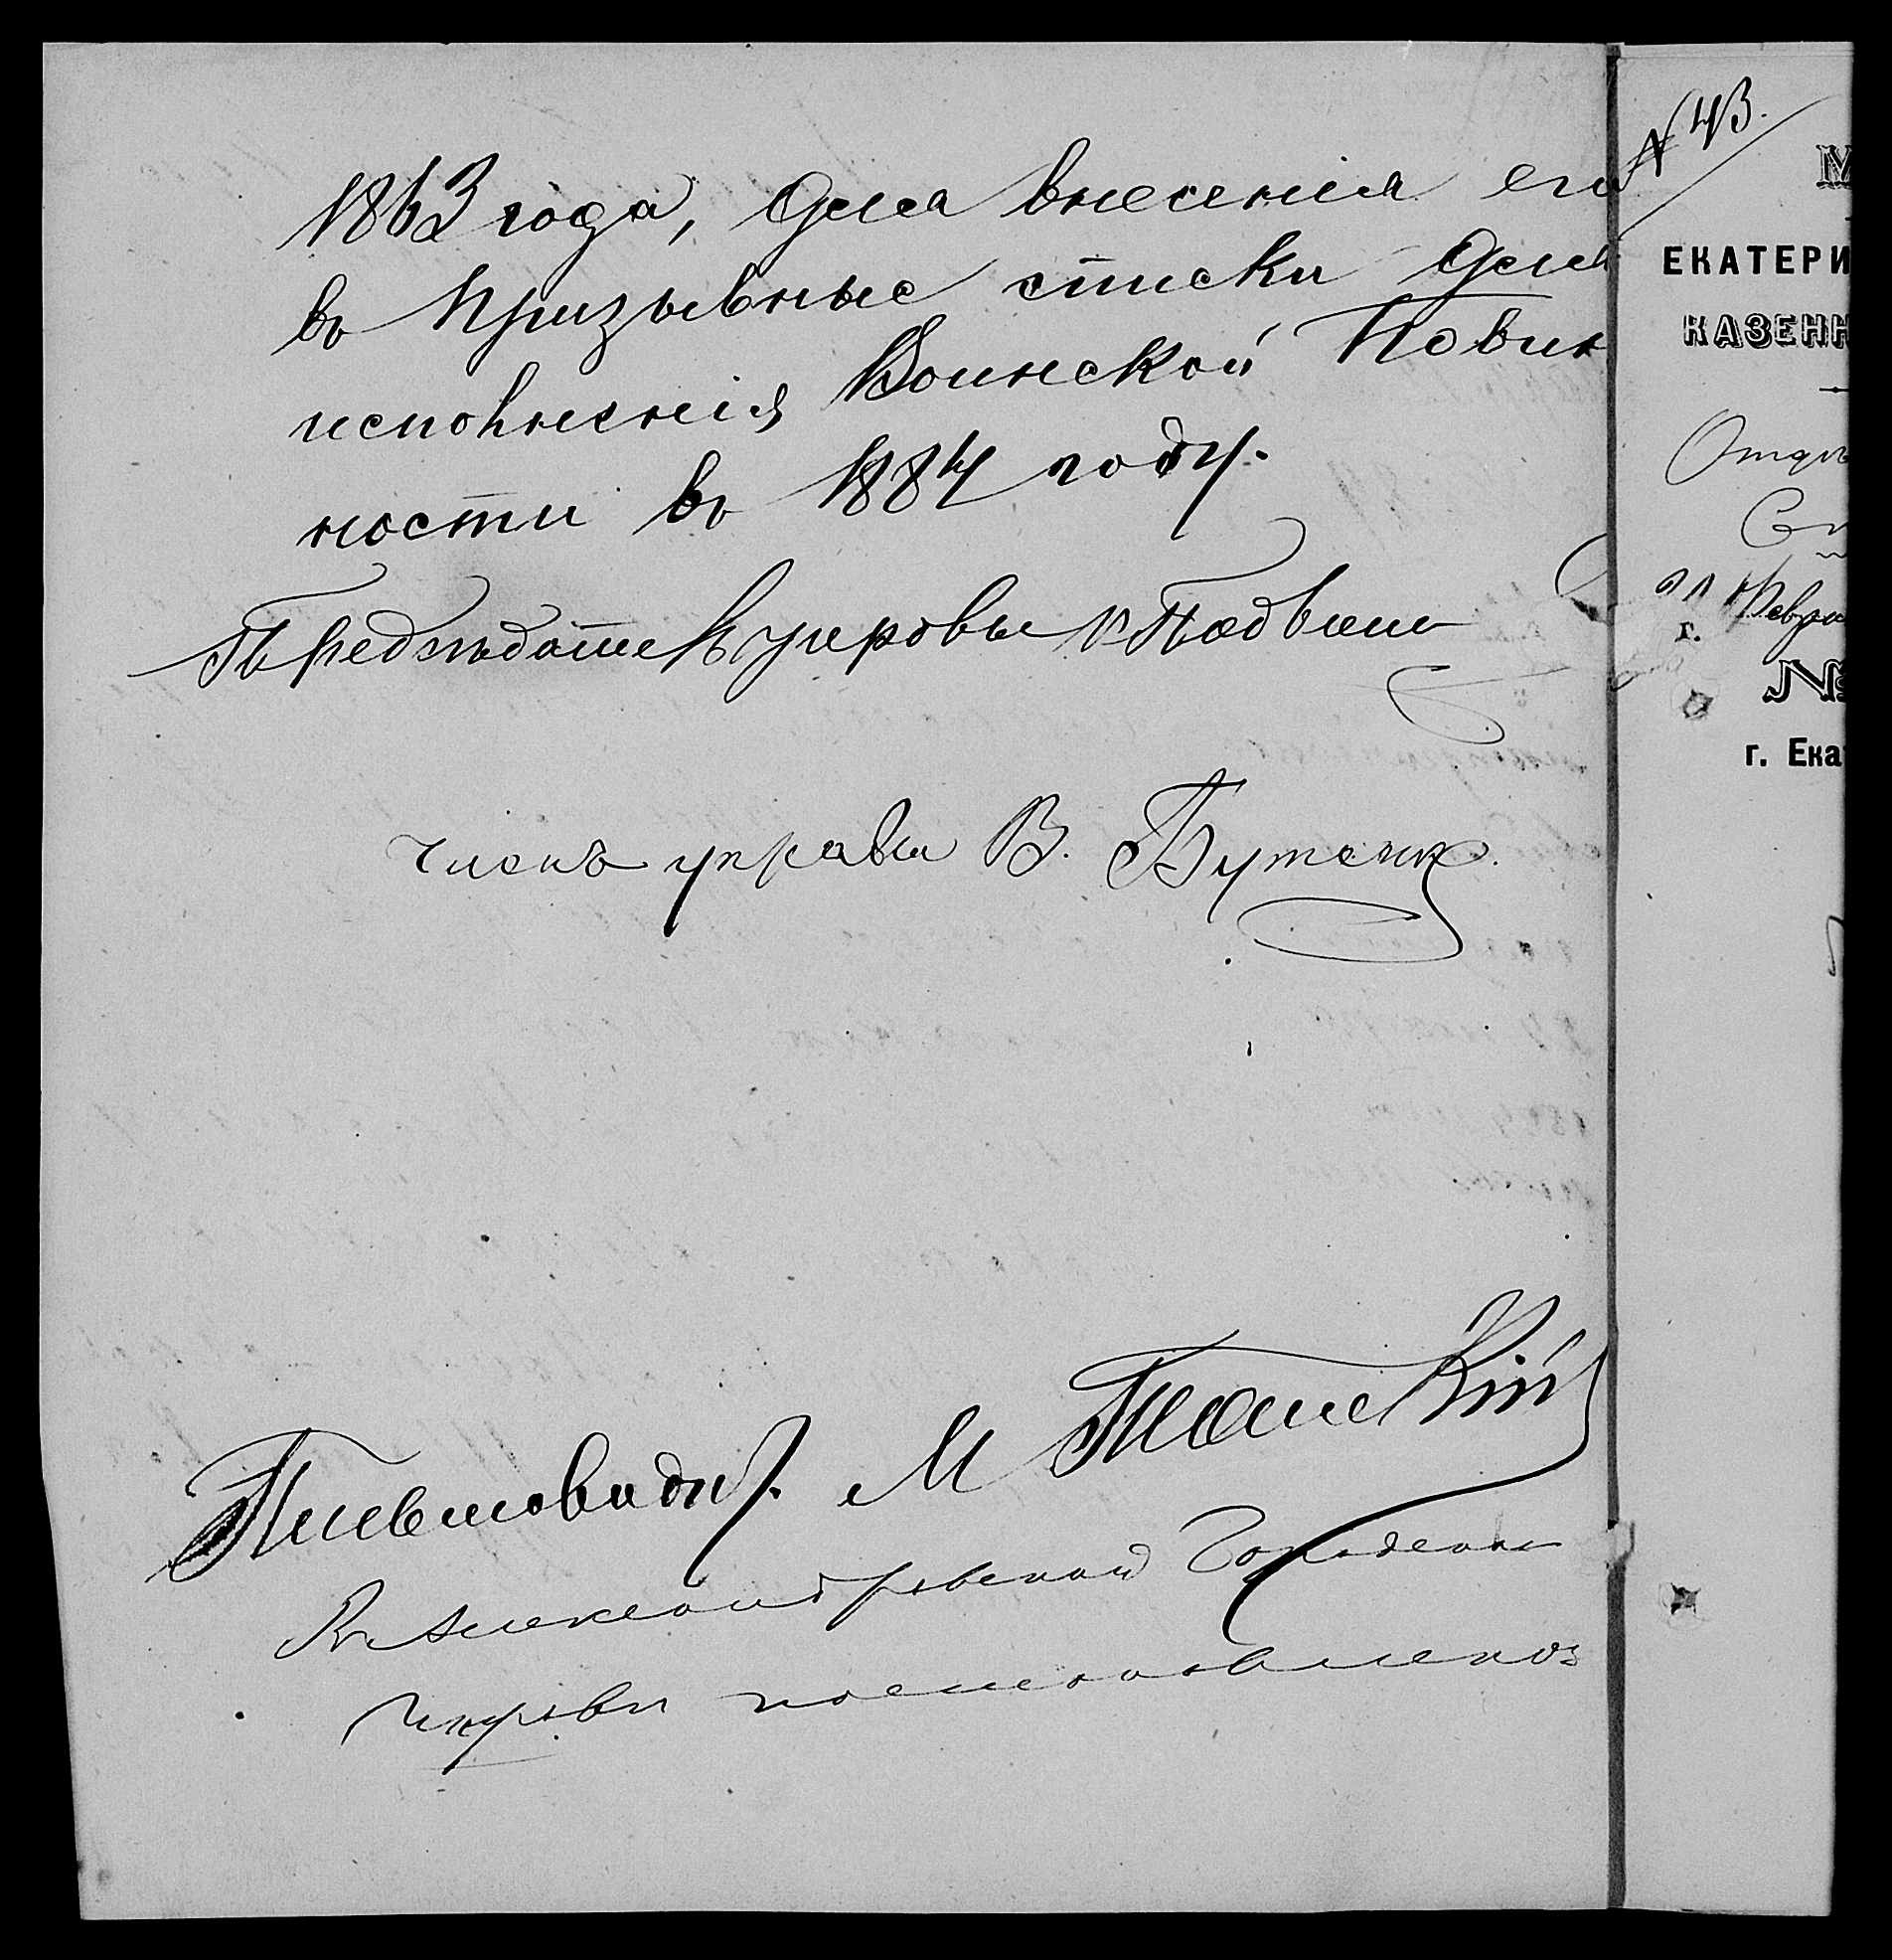 1863 года, для внесенія его
въ призывные списки для
исполненія Воинской Повин
ности въ 1884 году.
Председатель управы
Членъ управы В. Бутенко.
М
Александровской Городской
Управы
N 43.
М
ЕКАТЕРИ
КАЗЕНН
Отдѣ
Ст
Февра
г.
№
г. Ека